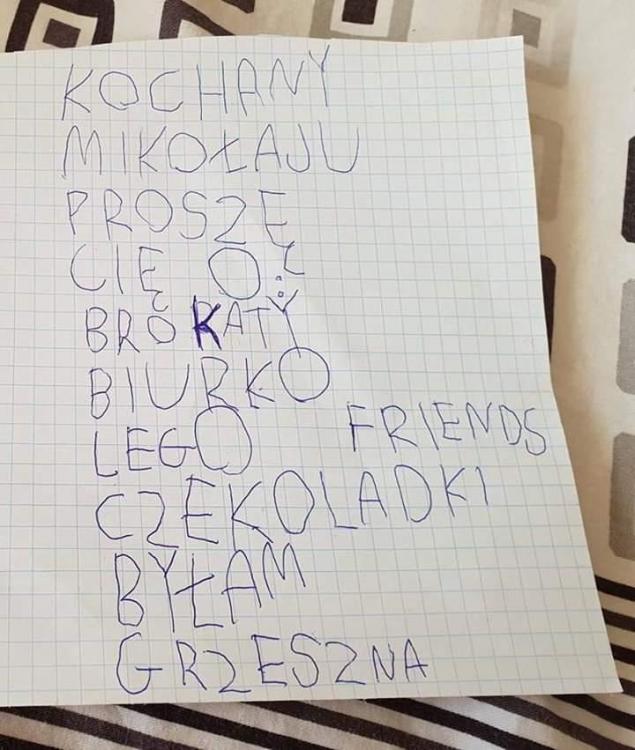 KOCHANY
MIKOŁAJU
PROSZĘ
CIĘ O:
BROKATY
BIURKO
LEGO FRIENDS
CZEKOLADKI
BYŁAM
GRZESZNA